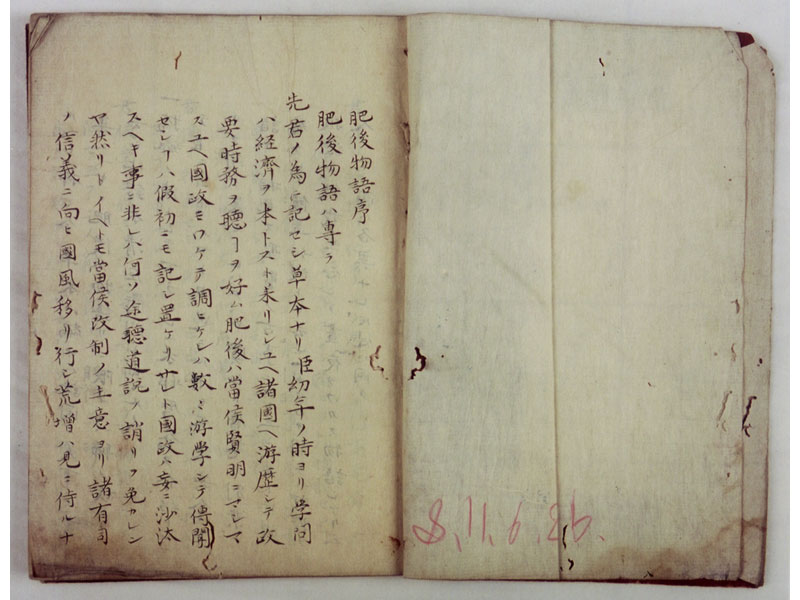 肥後物語序
肥後物語ハ専ラ
先君ノ為ニ記セシ草本ナリ臣幼年ノ時ヨリ学問
ハ経済ヲ本トスト承リシユヘ諸國ヘ游歴シテ政
要時務ヲ聴ヿヲ好ム肥後ハ當侯賢明ニマシマ
スユヘ國政ミロケテ調ヒケレハ數〻游学シテ傳聞
セシヿハ假初ニモ記シ置ケリサレト國政ハ妄ニ沙汰
スヘキ事ニ非レハ何ソ途聴道説ノ誚リヲ免カレン
ヤ然リトイヘトモ當侯改制ノ主意ヨリ諸有司
ノ信義ニ向ヒ國風移リ行シ荒増ハ見ニ侍ルナ
8,11,6,26.